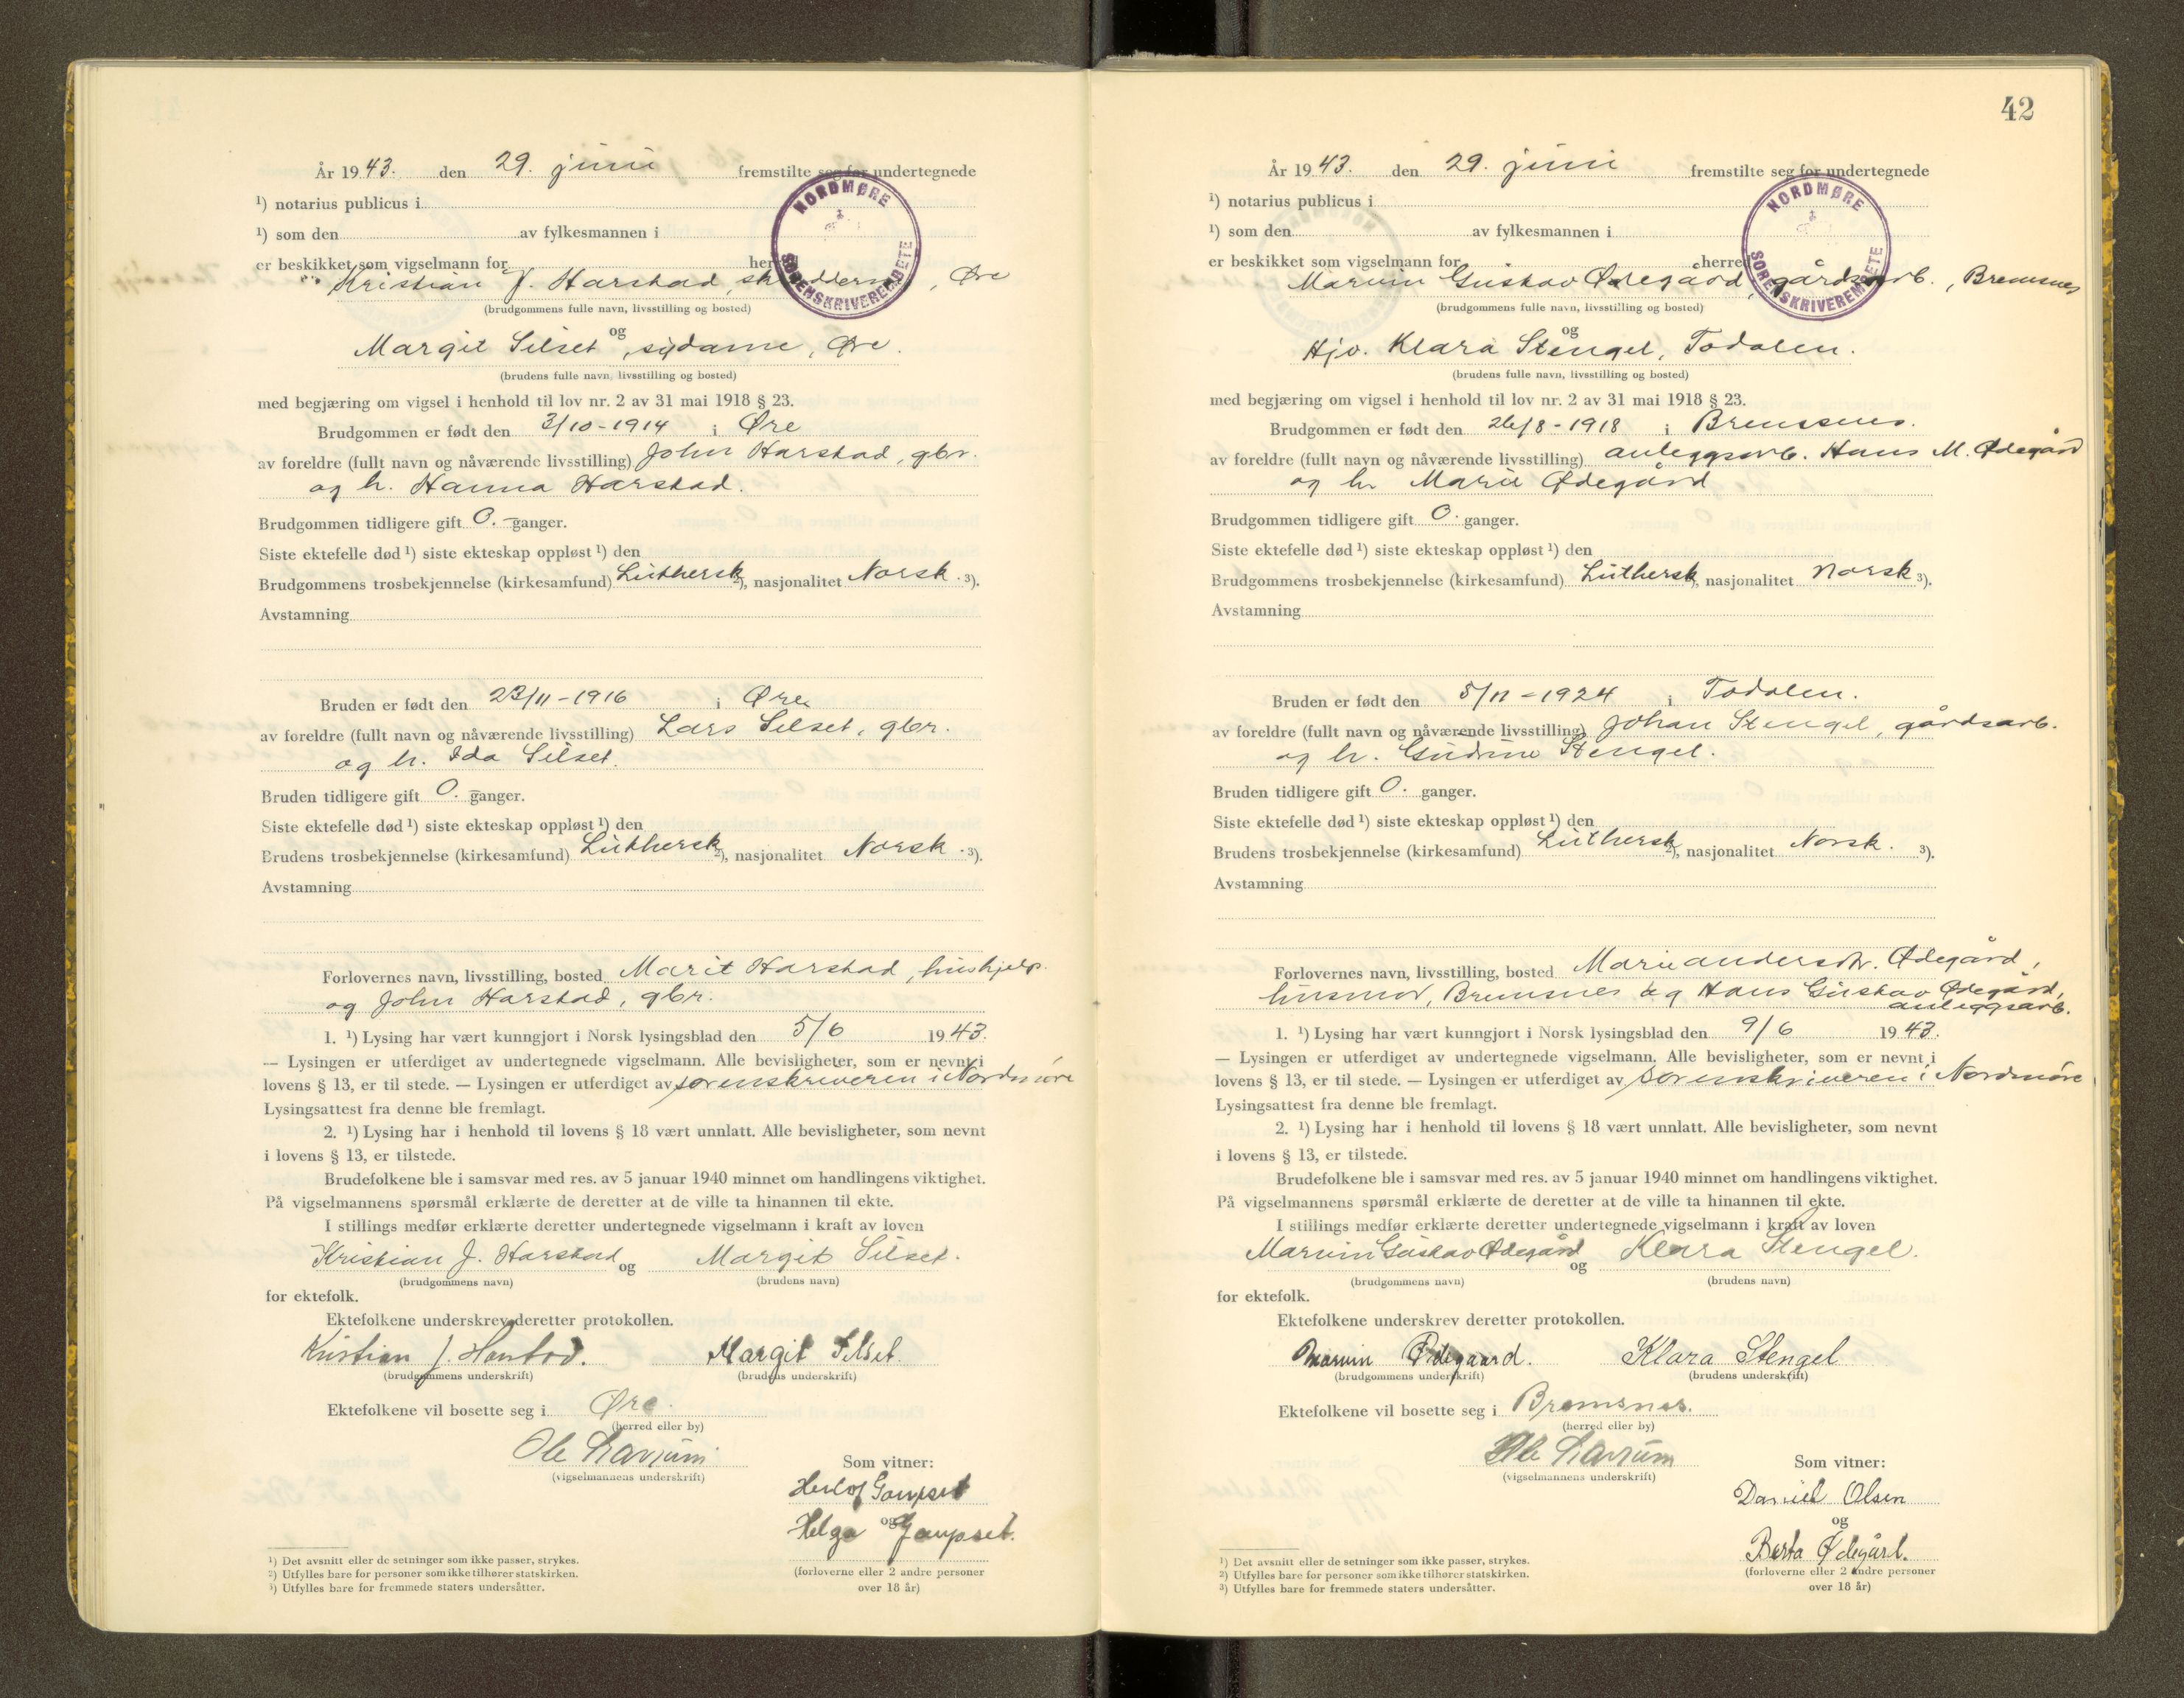 År 1943. den 29. juni fremstilte seg for undertegnede
¹) notarius publicus i
¹) som den av fylkesmannen i
er beskikket som vigselmann for herred
NORDMØRE SORENSKRIVEREMBETE
Kristian J. Harstad, skreddern, Øre
(brudgommens fulle navn, livsstilling og bosted)
og
Margit Silset, sydame, Øre.
(brudens fulle navn, livsstilling og bosted)
med begjæring om vigsel i henhold til lov nr. 2 av 31 mai 1918 § 23.
Brudgommen er født den 3/10-1914 i Øre
av foreldre (fullt navn og nåværende livsstilling) John Harstad, gbr.
og h. Hanna Harstad.
Brudgommen tidligere gift 0. ganger.
Siste ektefelle død ¹) siste ekteskap oppløst ¹) den
Brudgommens trosbekjennelse (kirkesamfund) Luthersk ²), nasjonalitet Norsk. ³).
Avstamning
Bruden er født den 23/11-1916 i Øre
av foreldre (fullt navn og nåværende livsstilling) Lars Silset, gbr.
og h. Ida Silset.
Bruden tidligere gift 0. ganger.
Siste ektefelle død ¹) siste ekteskap oppløst ¹) den
Brudens trosbekjennelse (kirkesamfund) Luthersk ²), nasjonalitet Norsk. ³).
Avstamning
Forlovernes navn, livsstilling, bosted Marit Harstad, hushjelp.
og John Harstad, gbr.
1. ¹) Lysing har vært kunngjort i Norsk lysingsblad den 5/6 1943.
— Lysingen er utferdiget av undertegnede vigselmann. Alle bevisligheter, som er nevnt i
lovens § 13, er til stede. — Lysingen er utferdiget av sorenskriveren i Nordmøre
Lysingsattest fra denne ble fremlagt.
2. ¹) Lysing har i henhold til lovens § 18 vært unnlatt. Alle bevisligheter, som nevnt
i lovens § 13, er tilstede.
Brudefolkene ble i samsvar med res. av 5 januar 1940 minnet om handlingens viktighet.
På vigselmannens spørsmål erklærte de deretter at de ville ta hinannen til ekte.
I stillings medfør erklærte deretter undertegnede vigselmann i kraft av loven
Kristian J. Harstad og Margit Silset.
(brudgommens navn) (brudens navn)
for ektefolk.
Ektefolkene underskrev deretter protokollen.
Kristian J. Harstad. Margit Silset.
(brudgommens underskrift) (brudens underskrift)
Ektefolkene vil bosette seg i Øre.
(herred eller by)
Ole
(vigselmannens underskrift)
Som vitner:
Herlof Gaupset
og
Helga Gaupset.
(forloverne eller 2 andre personer
over 18 år)
¹) Det avsnitt eller de setninger som ikke passer, strykes.
²) Utfylles bare for personer som ikke tilhører statskirken.
³) Utfylles bare for fremmede staters undersåtter.
42
År 1943. den 29. juni fremstilte seg for undertegnede
¹) notarius publicus i
¹) som den av fylkesmannen i
er beskikket som vigselmann for herred
NORDMØRE SORENSKRIVEREMBETE
Marvin Gustav Ødegård, gårdsarb., Bremsnes
(brudgommens fulle navn, livsstilling og bosted)
og
Hjv. Klara Stengel, Todalen.
(brudens fulle navn, livsstilling og bosted)
med begjæring om vigsel i henhold til lov nr. 2 av 31 mai 1918 § 23.
Brudgommen er født den 26/8-1918 i Bremsnes.
av foreldre (fullt navn og nåværende livsstilling) anleggsarb. Hans M. Ødegård
og h. Marie Ødegård
Brudgommen tidligere gift 0. ganger.
Siste ektefelle død ¹) siste ekteskap oppløst ¹) den
Brudgommens trosbekjennelse (kirkesamfund) Luthersk ²), nasjonalitet Norsk ³).
Avstamning
Bruden er født den 5/11-1924 i Todalen.
av foreldre (fullt navn og nåværende livsstilling) Johan Stengel, gårdsarb.
og h. Gudrun Stengel.
Bruden tidligere gift 0. ganger.
Siste ektefelle død ¹) siste ekteskap oppløst ¹) den
Brudens trosbekjennelse (kirkesamfund) Luthersk ²), nasjonalitet Norsk. ³).
Avstamning
Forlovernes navn, livsstilling, bosted Marie Andersdtr. Ødegård,
husmor, Bremsnes og Hans Gustav Ødegård,
anleggsarb.
1. ¹) Lysing har vært kunngjort i Norsk lysingsblad den 9/6 1943.
— Lysingen er utferdiget av undertegnede vigselmann. Alle bevisligheter, som er nevnt i
lovens § 13, er til stede. — Lysingen er utferdiget av sorenskriveren i Nordmøre
Lysingsattest fra denne ble fremlagt.
2. ¹) Lysing har i henhold til lovens § 18 vært unnlatt. Alle bevisligheter, som nevnt
i lovens § 13, er tilstede.
Brudefolkene ble i samsvar med res. av 5 januar 1940 minnet om handlingens viktighet.
På vigselmannens spørsmål erklærte de deretter at de ville ta hinannen til ekte.
I stillings medfør erklærte deretter undertegnede vigselmann i kraft av loven
Marvin Gustav Ødegård og Klara Stengel.
(brudgommens navn) (brudens navn)
for ektefolk.
Ektefolkene underskrev deretter protokollen.
Marvin Ødegaard. Klara Stengel
(brudgommens underskrift) (brudens underskrift)
Ektefolkene vil bosette seg i Bremsnes.
(herred eller by)
Ole
(vigselmannens underskrift)
Som vitner:
Daniel Olsen
og
Berta Ødegård.
(forloverne eller 2 andre personer
over 18 år)
¹) Det avsnitt eller de setninger som ikke passer, strykes.
²) Utfylles bare for personer som ikke tilhører statskirken.
³) Utfylles bare for fremmede staters undersåtter.